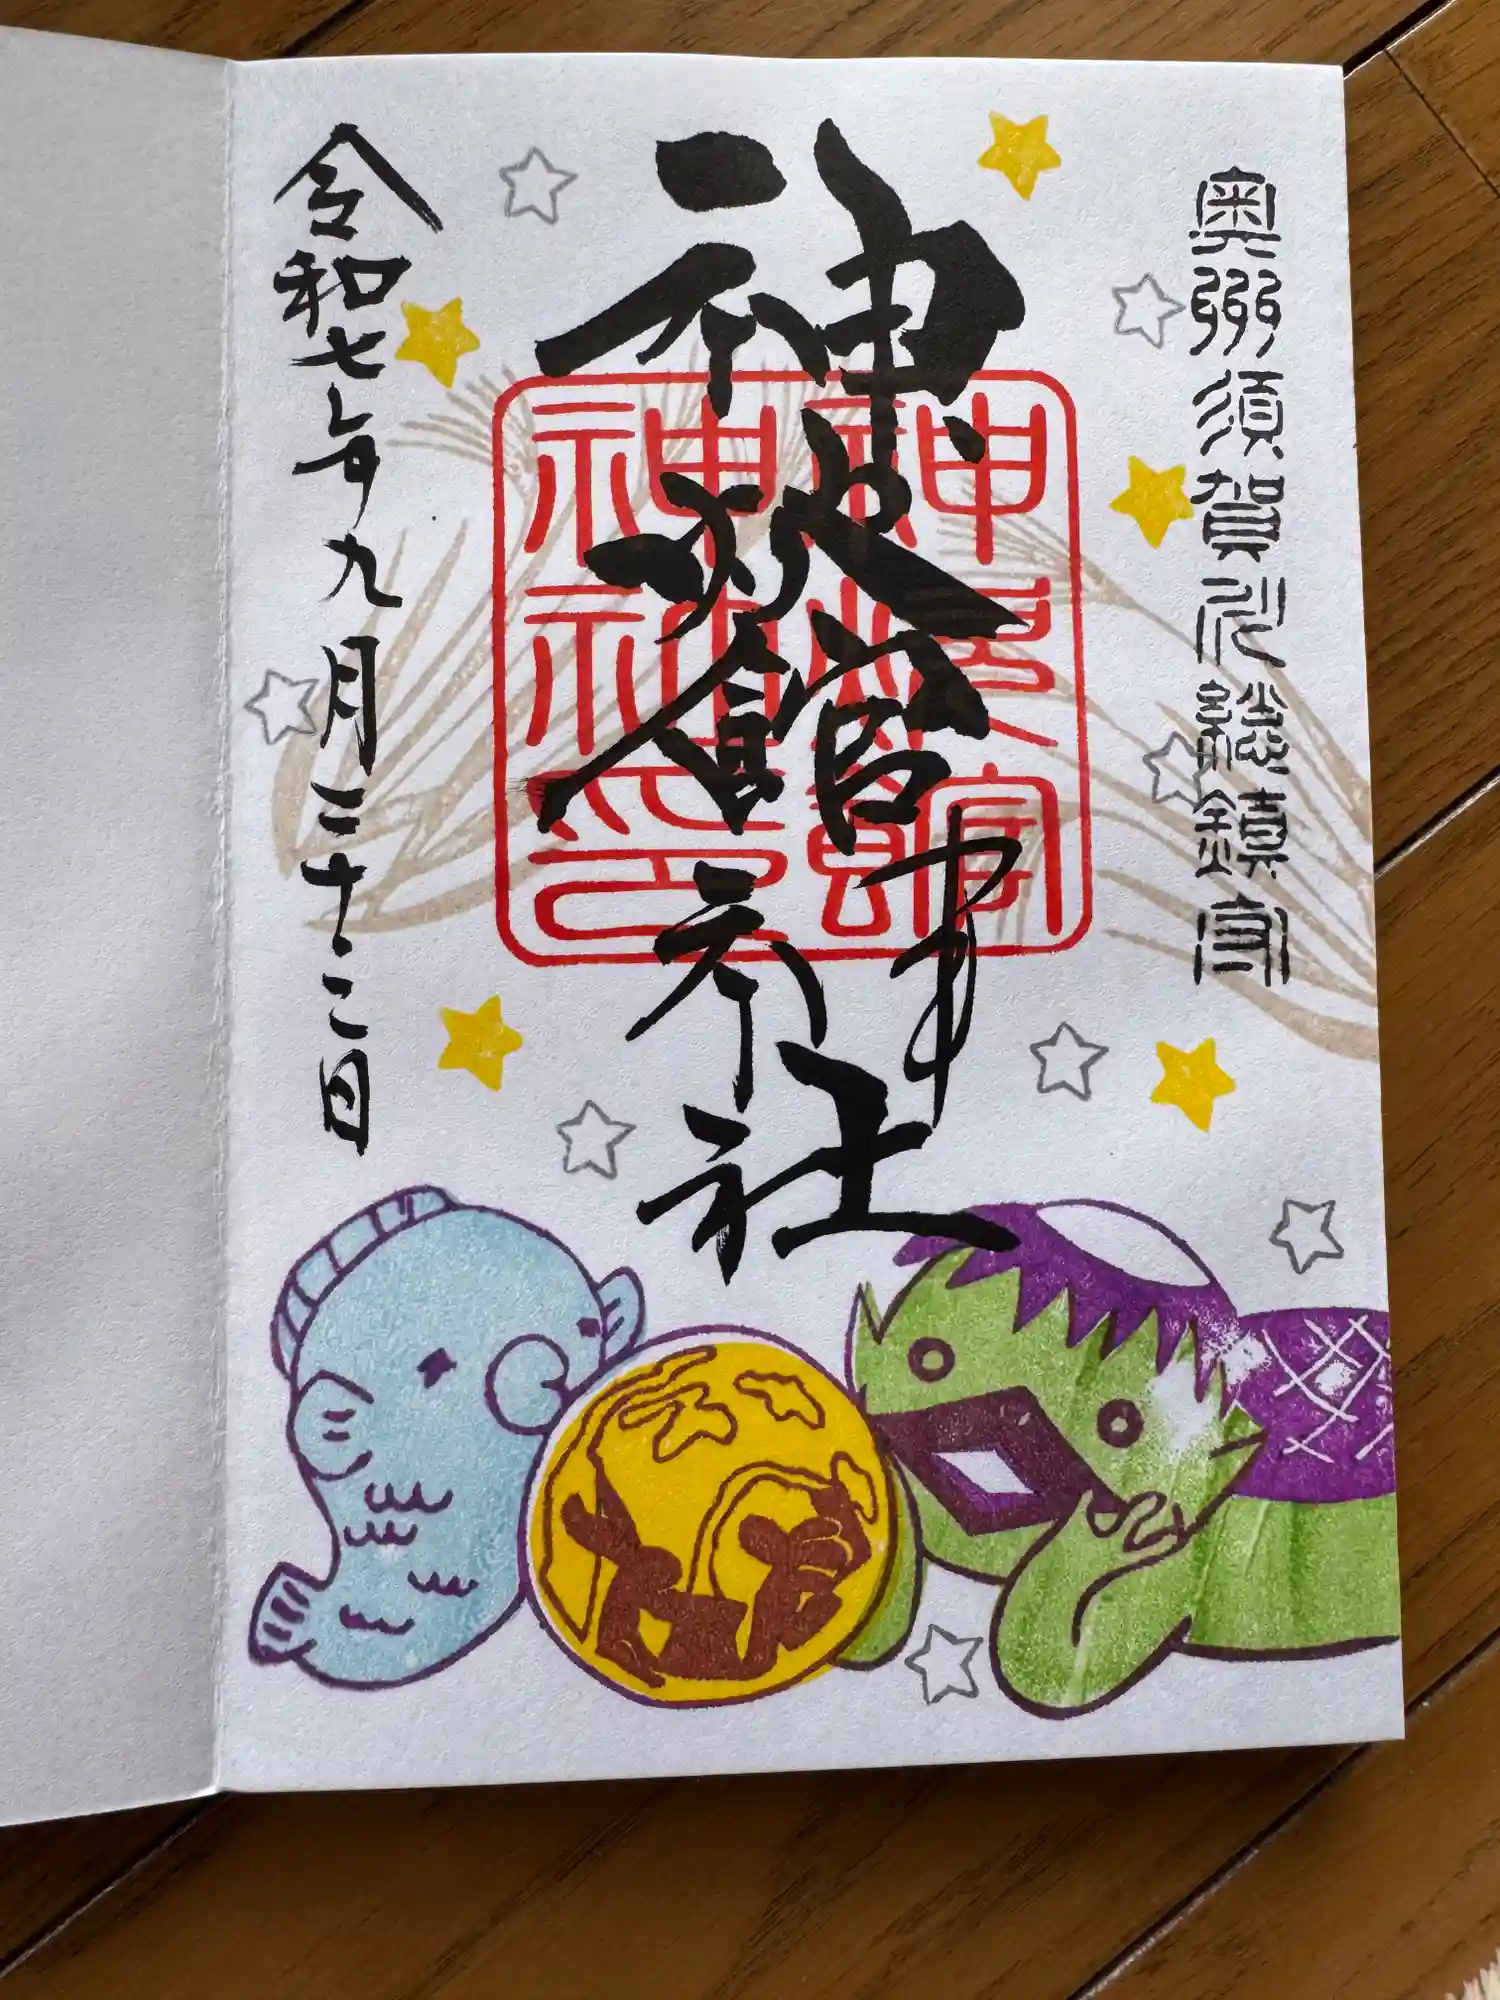 奥州須賀川總鎮守
神炊館神社
神炊館
神社印
令和七年九月二十二日